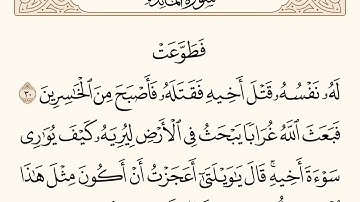 سورة المائدة
فَطَوَّعَتْ
لَهُۥ نَفْسُهُۥ قَتْلَ أَخِيهِ فَقَتَلَهُۥ فَأَصْبَحَ مِنَ ٱلْخَٰسِرِينَ ٣٠
فَبَعَثَ ٱللَّهُ غُرَابًا يَبْحَثُ فِى ٱلْأَرْضِ لِيُرِيَهُۥ كَيْفَ يُوَٰرِى
سَوْءَةَ أَخِيهِ ۚ قَالَ يَٰوَيْلَتَىٰٓ أَعَجَزْتُ أَنْ أَكُونَ مِثْلَ هَٰذَا